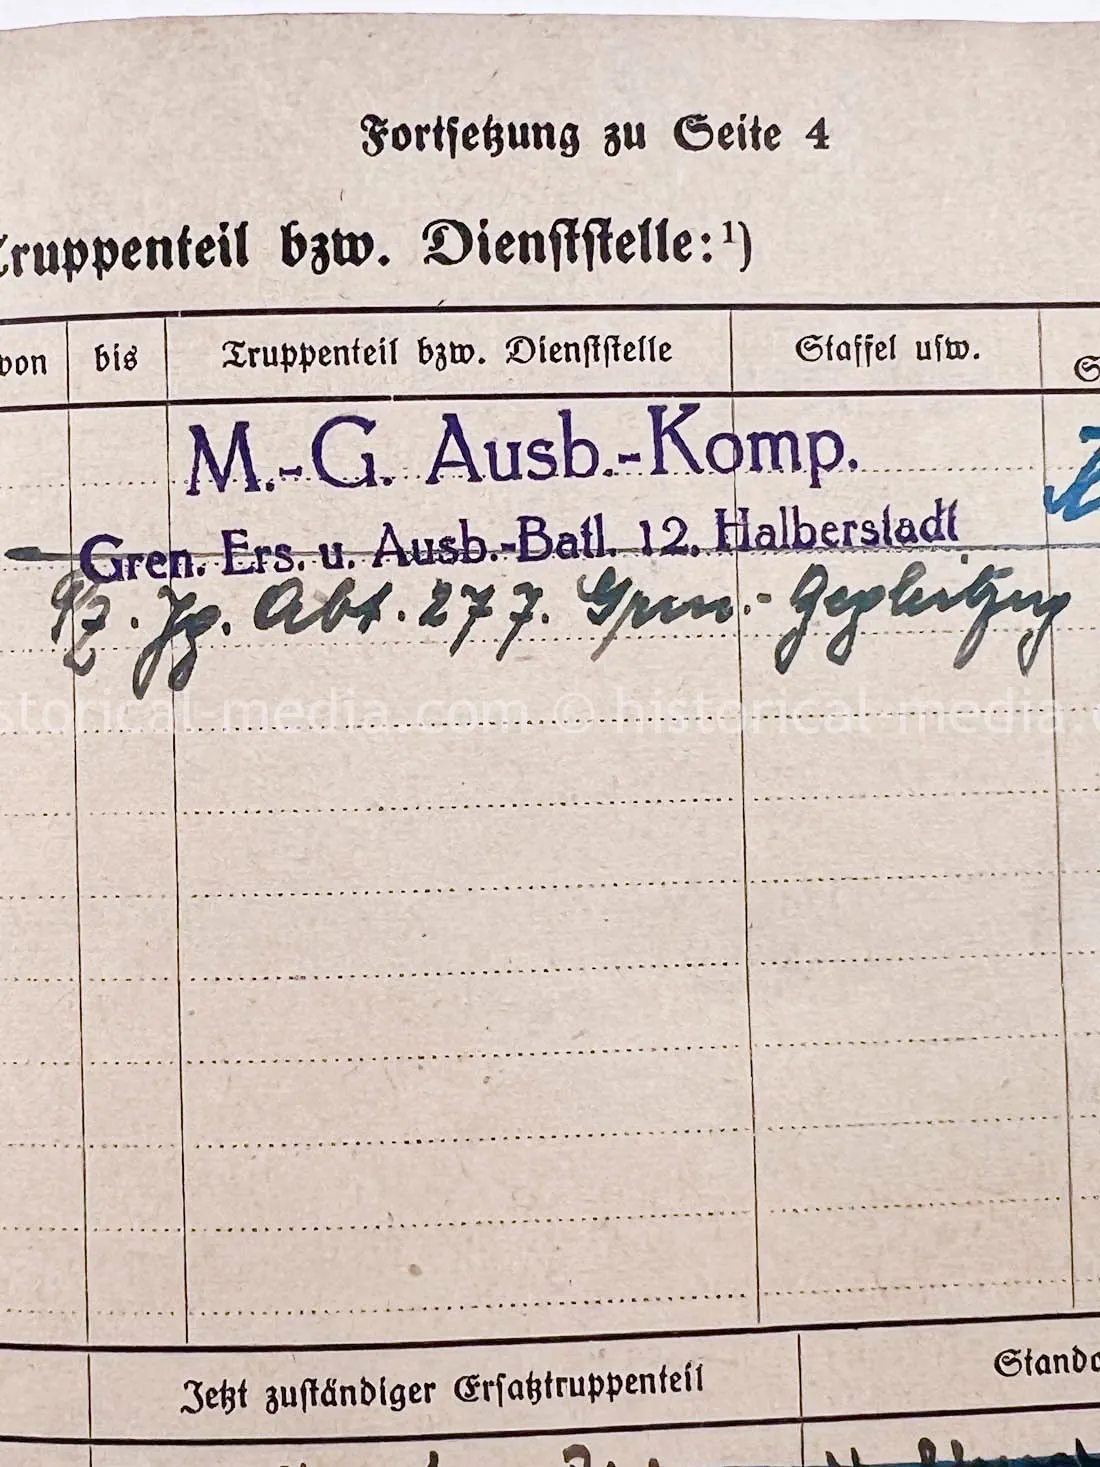 Fortsetzung zu Seite 4
Truppenteil bzw. Dienststelle:¹)
von bis Truppenteil bzw. Dienststelle Staffel usw.
M.-G. Ausb.-Komp.
Gren. Ers. u. Ausb.-Batl. 12. Halberstadt
Jg. Abt. 277. Gren.-
historical-media.com © historical-media.c
Jetzt zuständiger Ersatztruppenteil Stando